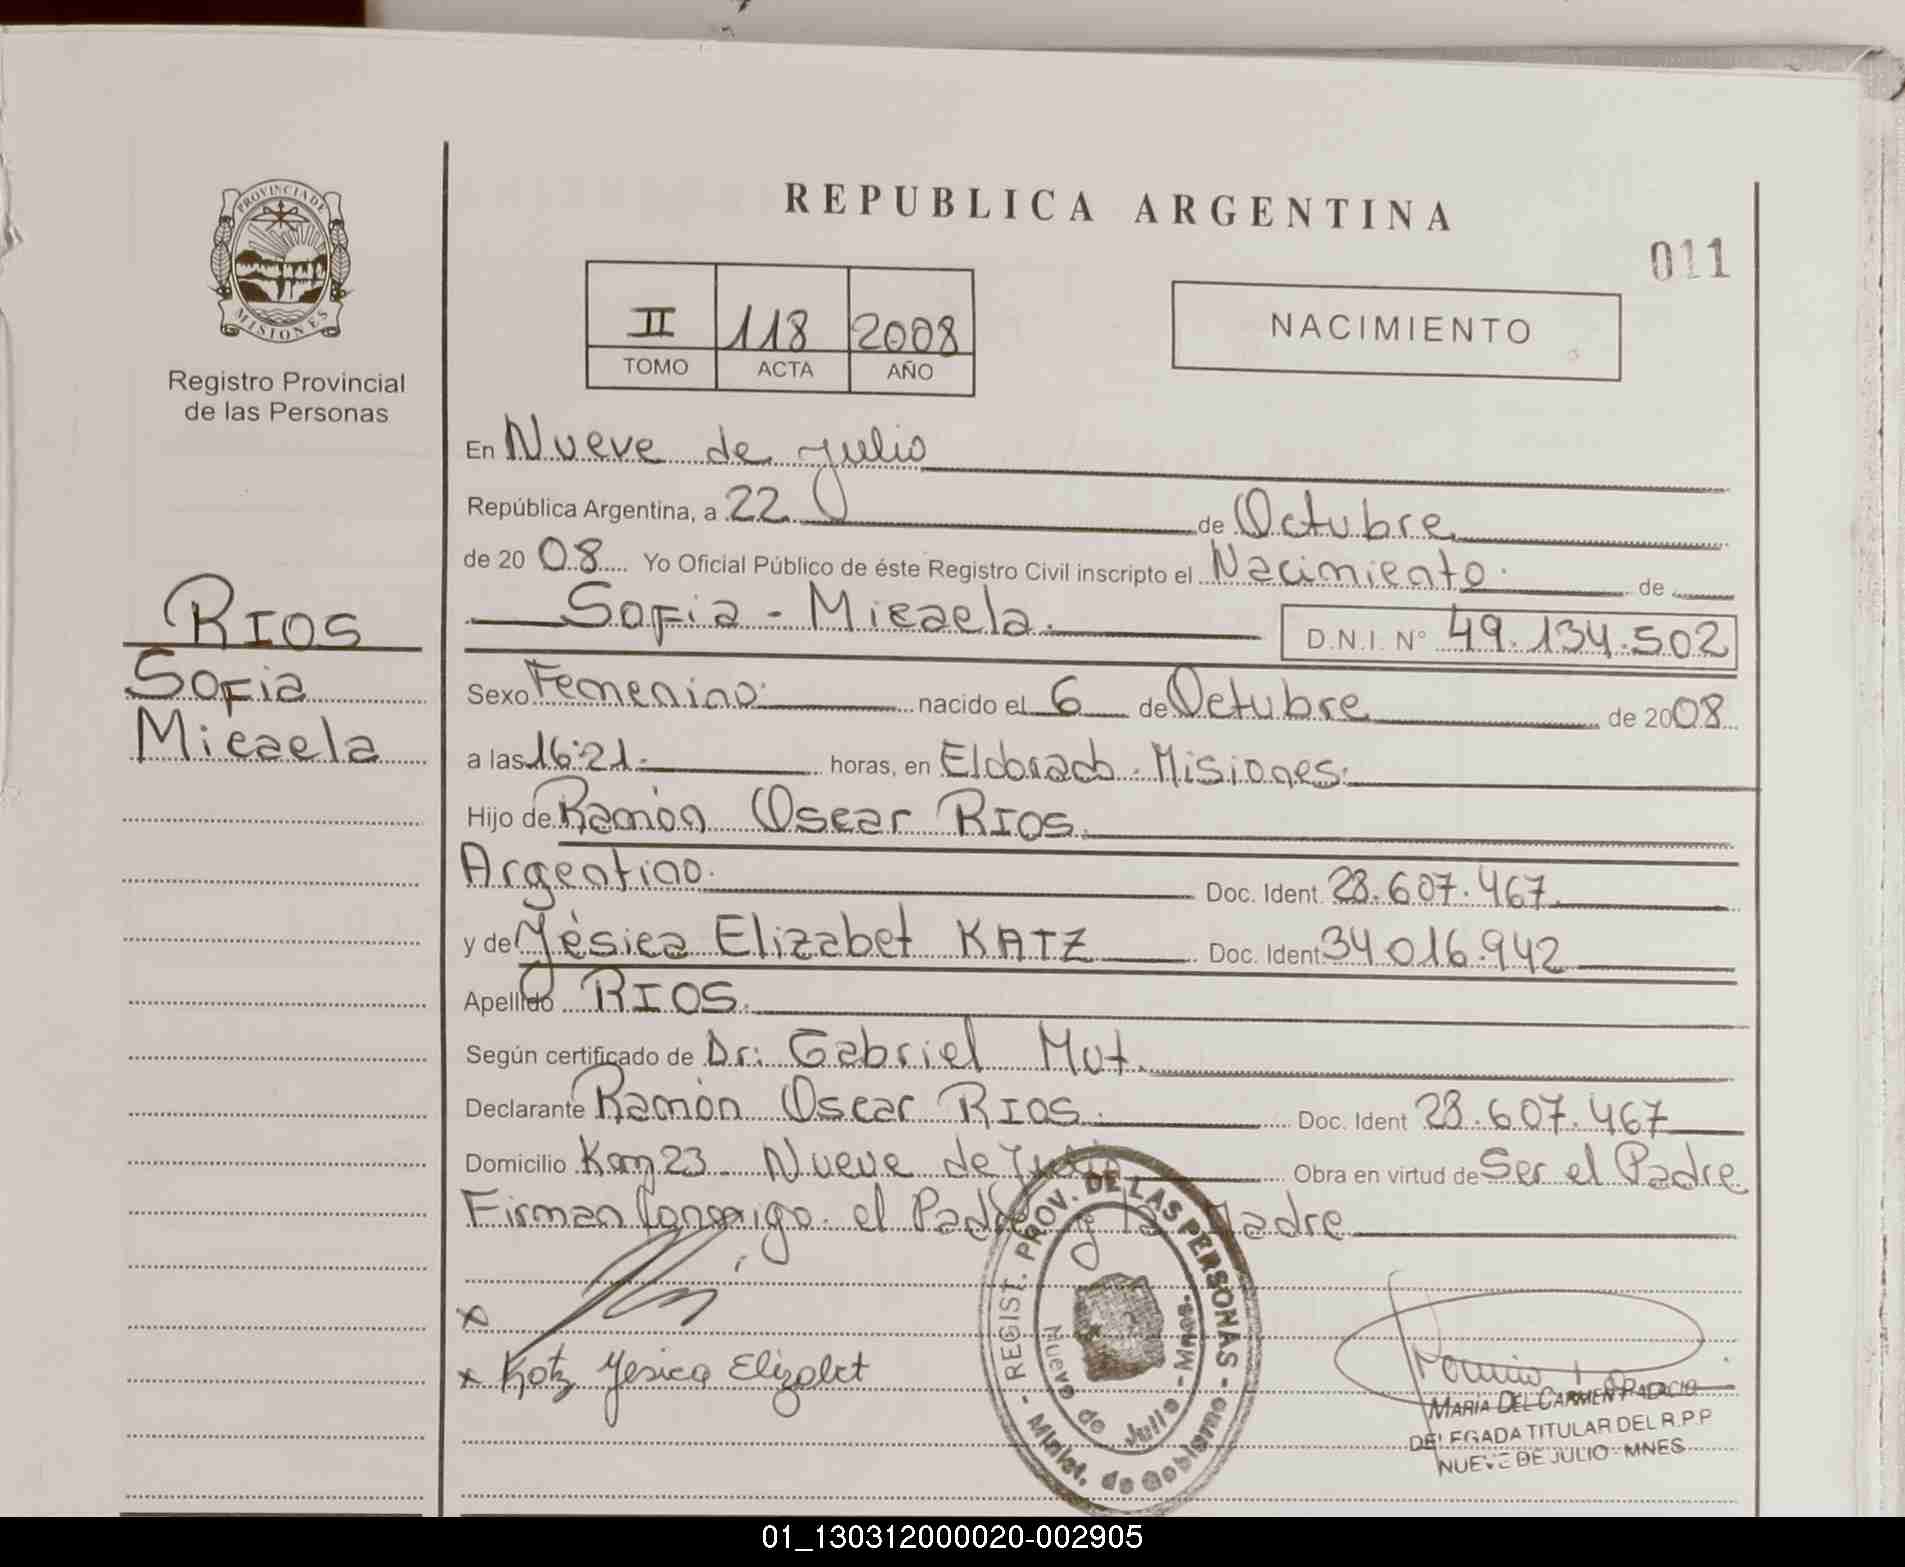 PROVINCIA DE
MISIONES
Registro Provincial
de las Personas
RIOS
Sofia
Micaela
REPUBLICA ARGENTINA
011
II 118 2008
TOMO ACTA AÑO
NACIMIENTO
En Nueve de julio
República Argentina, a 22 de Octubre
de 20 08 Yo Oficial Público de éste Registro Civil inscripto el Nacimiento. de
Sofia - Micaela.
D.N.I. N° 49.134.502
Sexo Femenino. nacido el 6 de Octubre de 2008
a las 16:21. horas, en Eldorado. Misiones.
Hijo de Ramón Oscar RIOS.
Argentino. Doc. Ident. 28.607.467.
y de Yésica Elizabet KATZ Doc. Ident. 34016.942
Apellido RIOS.
Según certificado de Dr: Gabriel Mut.
Declarante Ramón Oscar RIOS. Doc. Ident 28.607.467
Domicilio Km 23 Nueve de Julio Obra en virtud de Ser el Padre
Firman Conmigo. el Padre y la Madre
x
x Katz Yesica Elizabet
- REGIST. PROV. DE LAS PERSONAS -
Nueve de Julio - Mnes.
Minist. de Gobierno -
MARIA DEL CARMEN PALACIO
DELEGADA TITULAR DEL R.P.P
NUEVE DE JULIO - MNES
01_130312000020-002905